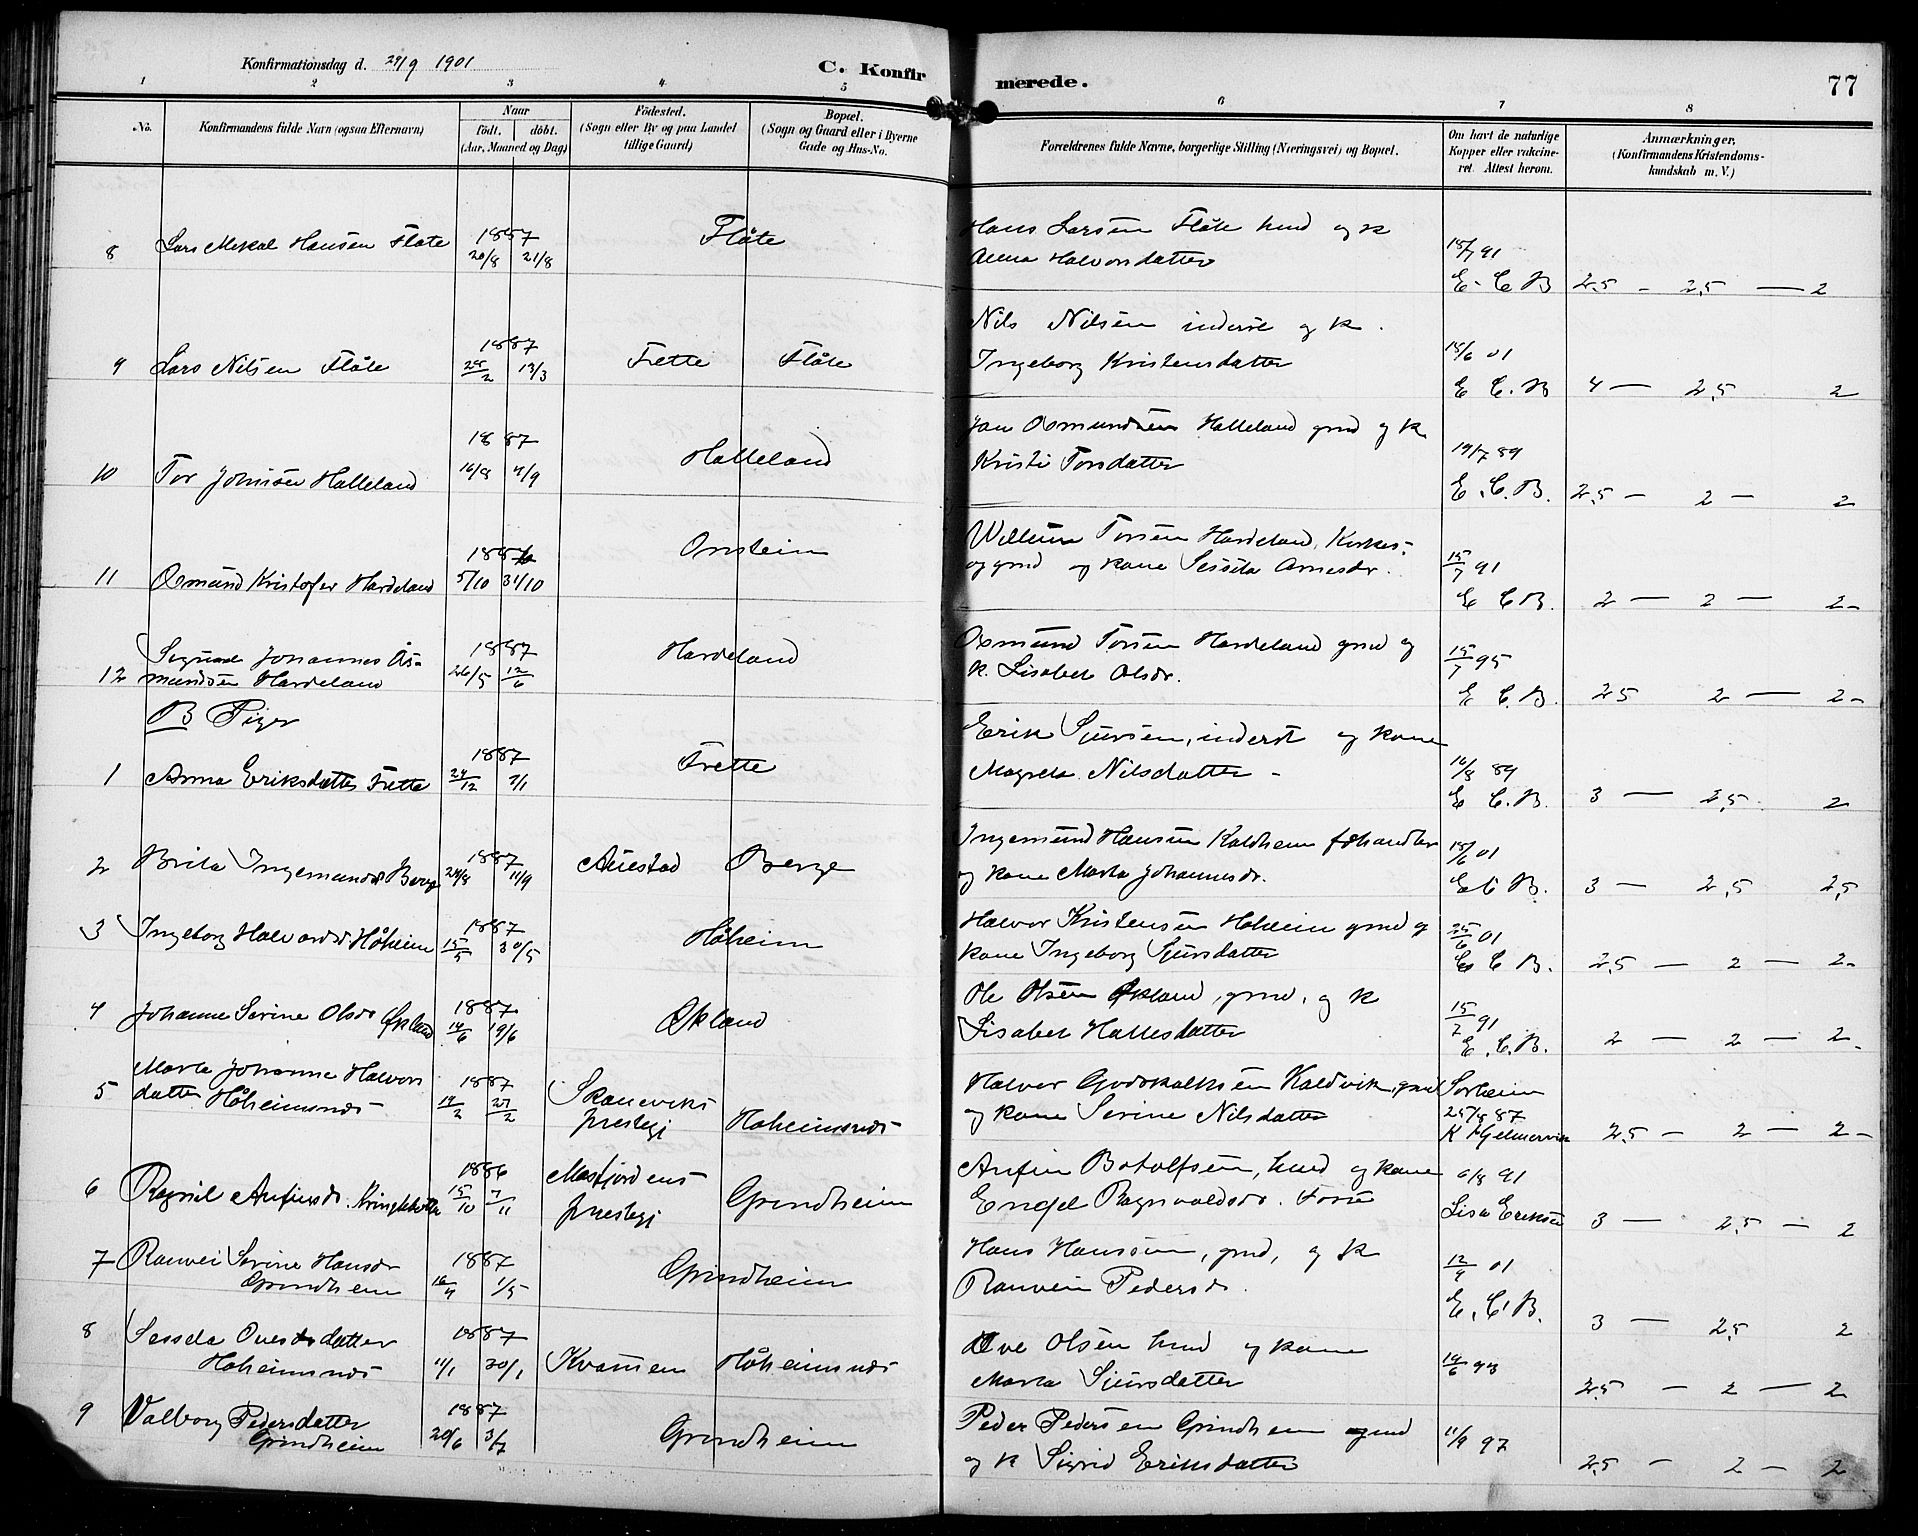 Konfirmationsdag d. 29/9 1901
C. Konfirmerede.
77
1 2 3 4 5 6 7 8
No.
Konfirmandens fulde Navn (ogsaa Efternavn)
Naar
födt. döbt.
(Aar, Maaned og Dag)
Födested.
(Sogn eller By og paa Landet
tillige Gaard)
Bopæl.
(Sogn og Gaard eller i Byerne
Gade og Hus-No.
Forældrenes fulde Navne, borgerlige Stilling (Næringsvei) og Bopæl.
Om havt de naturlige
Kopper eller vakcine-
ret. Attest herom.
Anmærkninger,
(Konfirmandens Kristendoms-
kundskab m. V.)
8 Lars Mikal Hansen Flåte 1887 20/8 21/8 Flåte
Hans Larsen Flåte husd og k
Anna Halvorsdatter
18/7 91
E. C. B 2,5 - 2,5 — 2
9 Lars Nilsen Flåte 1887 28/2 13/3 Frette Flåte
Nils Nilsen inderst og k.
Ingeborg Kristensdatter
18/6 01
E C. B 4 — 2,5 2
10 Tor Johnsen Halleland 1887 16/8 4/9 Halleland
Jon Osmundsen Halleland grd og k
Kristi Torsdatter
19/7 89
E. C. B. 2,5 — 2 — 2
11 Osmund Kristofer Hardeland 5/10 31/10 Onsteim
Torsen Hardeland, Kirkes-
og grd og kone Sessela Arnesdr.
15/7 91
E C B. 2 — 2 — 2 -
12 Sigurd Johannes As-
mundsen Hardeland 1887 26/5 12/6 Hardeland
Osmund Torsen Hardeland grd og
k. Lisabet Olsdr.
15/7 95
E C. B. 2,5 2 — 2 -
B Piger
1 Anna Eriksdatter Frette 1887 24/12 7/1 Frette
Erik Sjursen, inderst og kone
Magrela Nilsdatter -
16/8 89
E C. B. 3 — 2,5 2
2 Brita Ingemundsdr Berge 1887 24/8 11/9 Auestad Berge
Ingemund Hansen Kaldheim fdhandler
og kone Marta Johannesdr.
18/6 01
E C B. 3 — 2,5 2,5
3 Ingeborg Halvordsdr Håheim 1887 15/5 30/5 Håheim
Halvor Kristensen Håheim grd og
kone Ingeborg Sjursdatter
25/6 01
E C B. 2,5 — 2 — 2 -
4 Johanne Serine Olsdr Økland 1887 14/6 19/6 Økland
Ole Olsen Økland, grd, og k
Lisabet Hallesdatter
15/7 91
E. C. B. 2 — 2 — 2 -
5 Marta Johanne Halvors
datter Håheimsnes 1887 14/2 27/2 Skaneviks
prestegj Håheimsnes
Halvor Godskalksen Kaldvik, grd
og kone Serine Nilsdatter
Sørheim
25/8 87
K T Gjelmervik 2,5 — 2 — 2 —
6 Ragnil Anfinsdr. 1886 15/10 7/11 Masfjordens
prestegj Grindheim
Anfin Botolfsen, husd og kone
Engel Ragnvaldsdr.
6/8 91
Lisa Eriksen 3 — 2,5 — 2
7 Ranvei Serine Hansdr
Grindheim 1887 16/4 1/5 Grindheim
Hans Hansen, grd, og k
Ranvei Pedersdr.
12/9 01
E. C. B. 3 — 2,5 2
8 Sessela Ovesdatter
Håheimsnes 1887 11/1 30/1 Kvamen Håheimsnes
Ove Olsen husd og kone
Marta Sjursdatter
14/6 93
2,5 — 2 — 2
9 Valborg Pedersdatter
Grindheim 1887 20/6 3/7 Grindheim
Peder Pedersen Grindheim grd
og k Sigrid Eriksdatter
11/9 97
2,5 — 2 — 2